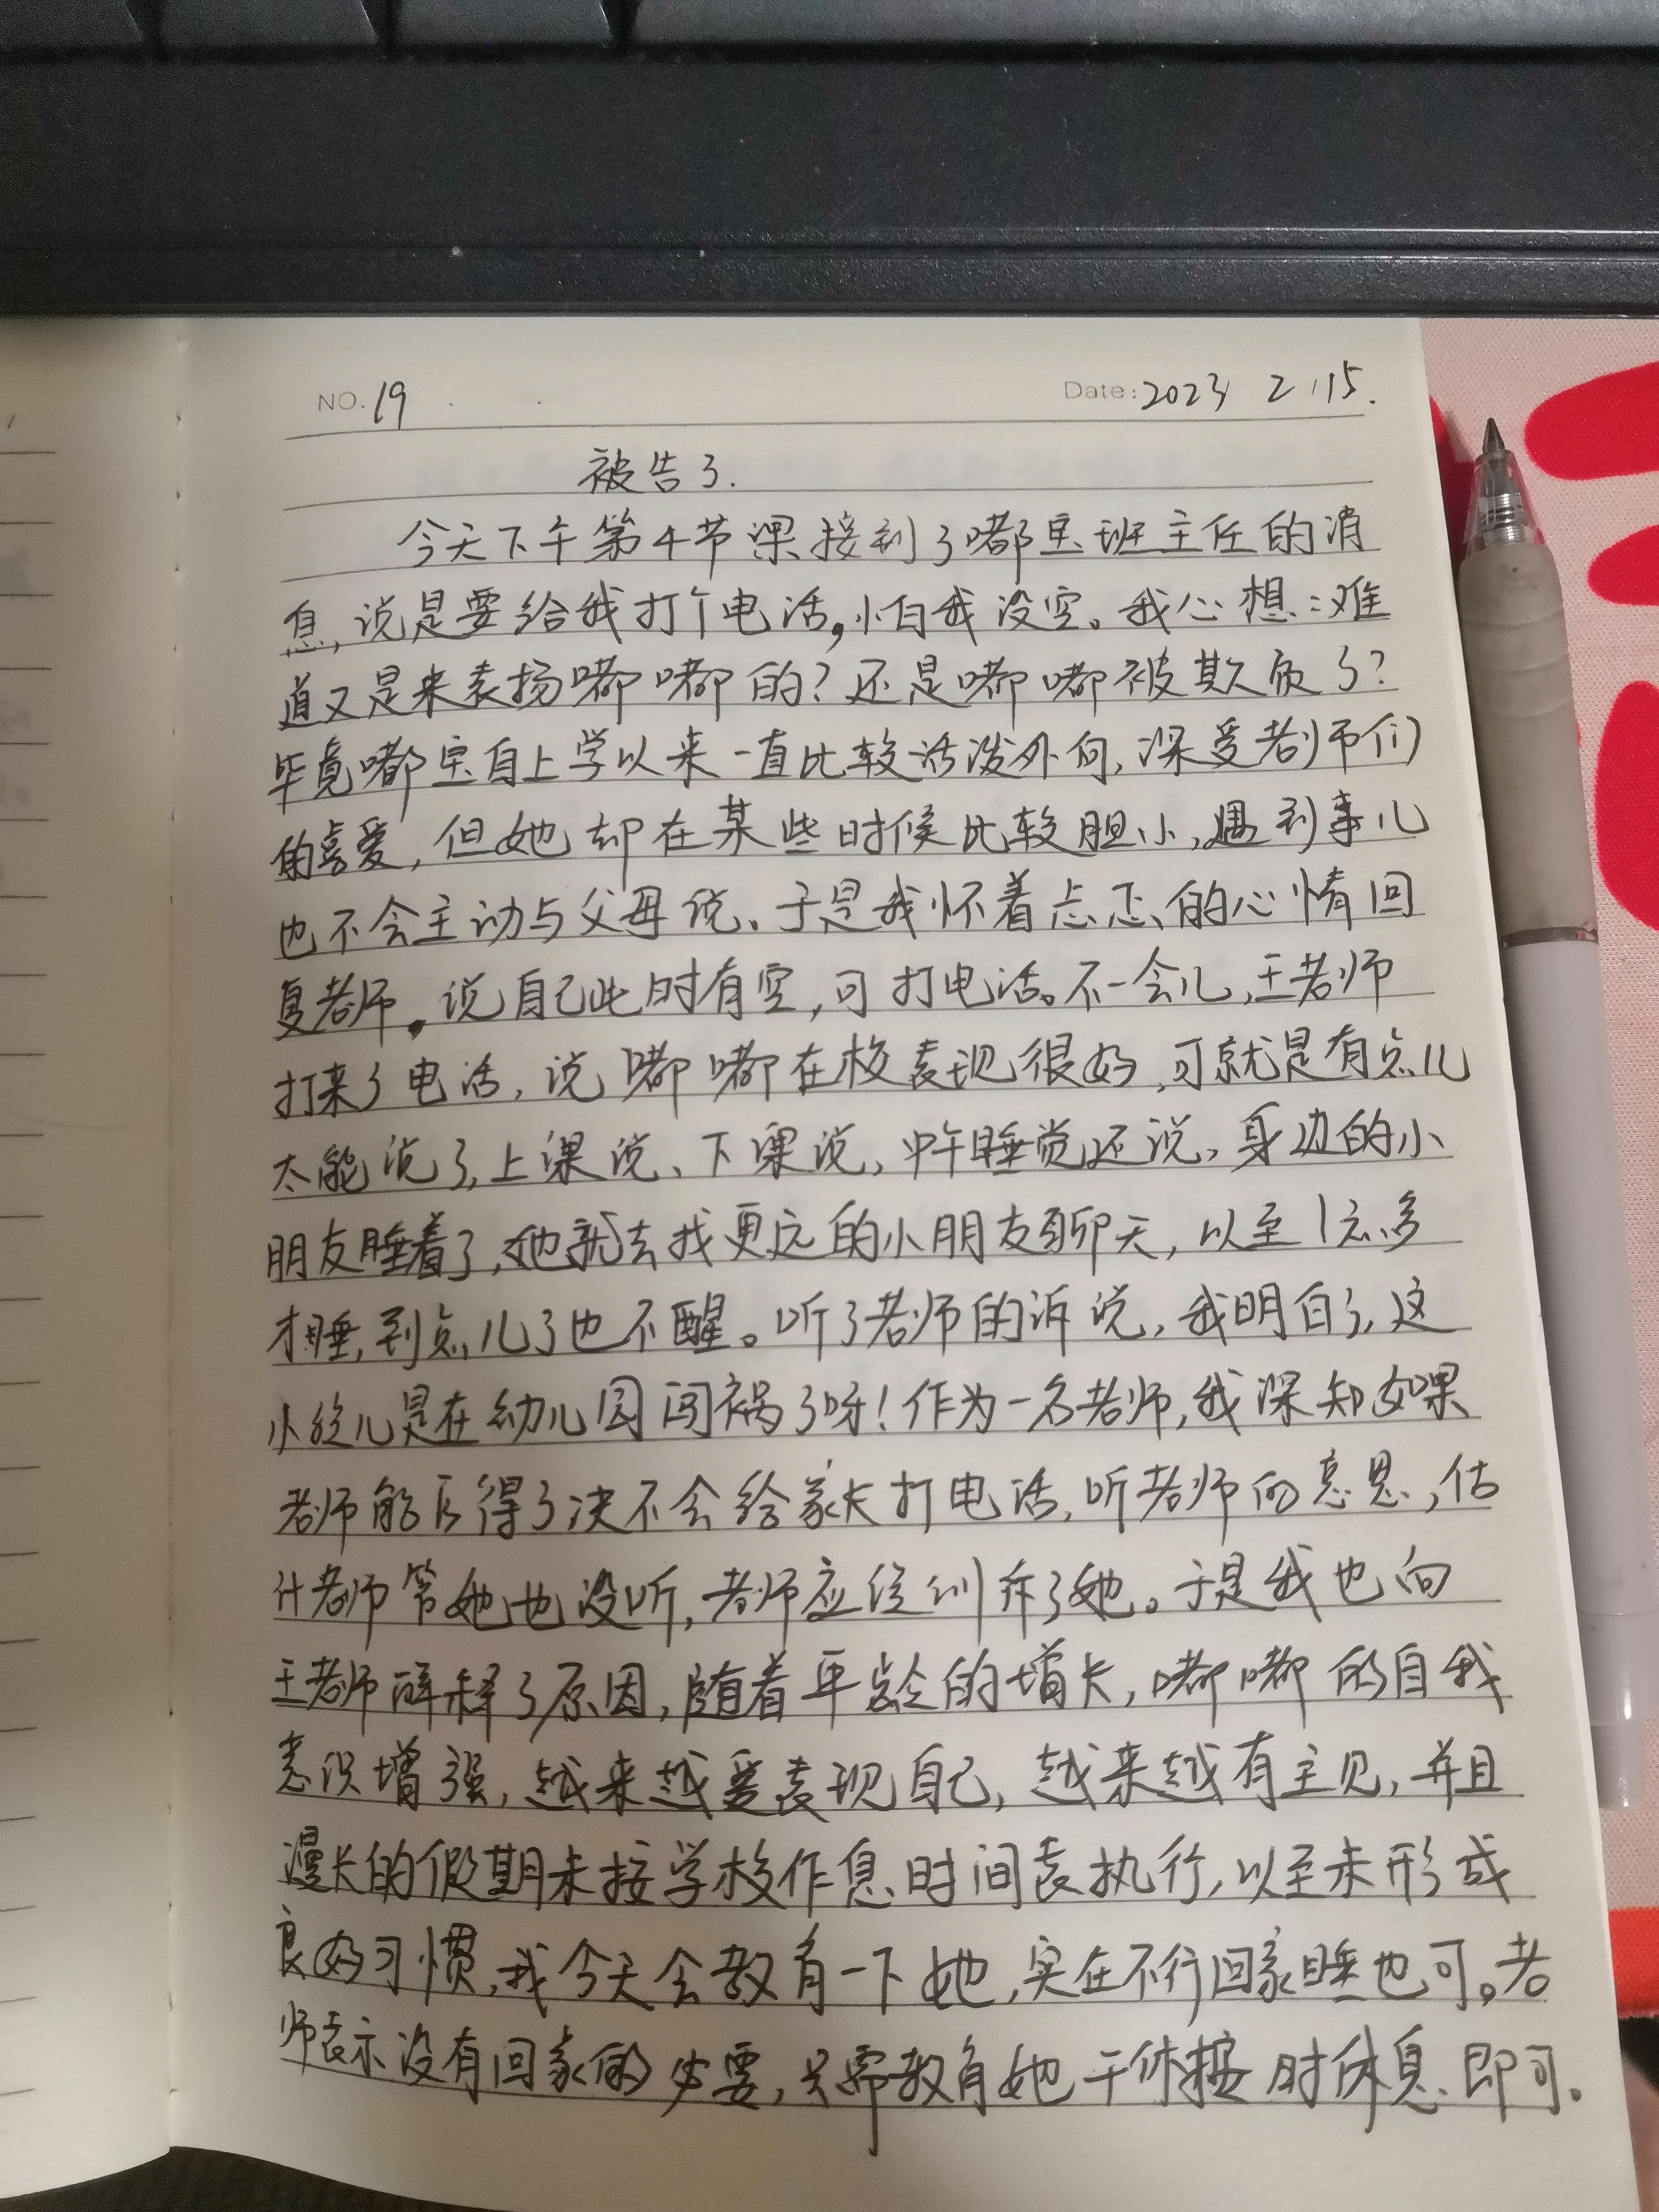 NO. 19
Date: 2023 2 15.
被告了.
今天下午第4节课接到了嘟宝班主任的消
息,说是要给我打个电话,怕我没空。我心想:难
道又是来表扬嘟嘟的?还是嘟嘟被欺负了?
毕竟嘟宝自上学以来一直比较活泼外向,深受老师们
的喜爱,但她却在某些时候比较胆小,遇到事儿
也不会主动与父母说、于是我怀着忐忑的心情回
复老师。说自己此时有空,可打电话。不一会儿,王老师
打来了电话,说嘟嘟在校表现很好,可就是有点儿
太能说了,上课说、下课说,中午睡觉还说,身边的小
朋友睡着了,她就去找更远的小朋友聊天,以至1点多
才睡,到点儿了也不醒。听了老师的诉说,我明白了,这
小丫儿是在幼儿园闯祸了呀!作为一名老师,我深知如果
老师能压得了决不会给家长打电话,听老师的意思,估
计老师管她也没听,老师应该训斥了她。于是我也向
王老师解释了原因,随着年龄的增长,嘟嘟的自我
意识增强,越来越爱表现自己,越来越有主见,并且
漫长的假期未按学校作息时间表执行,以至未形成
良好习惯,我今天会教育一下她,实在不行回家睡也可。老
师表示没有回家的必要,只需教育她午休按时休息即可。